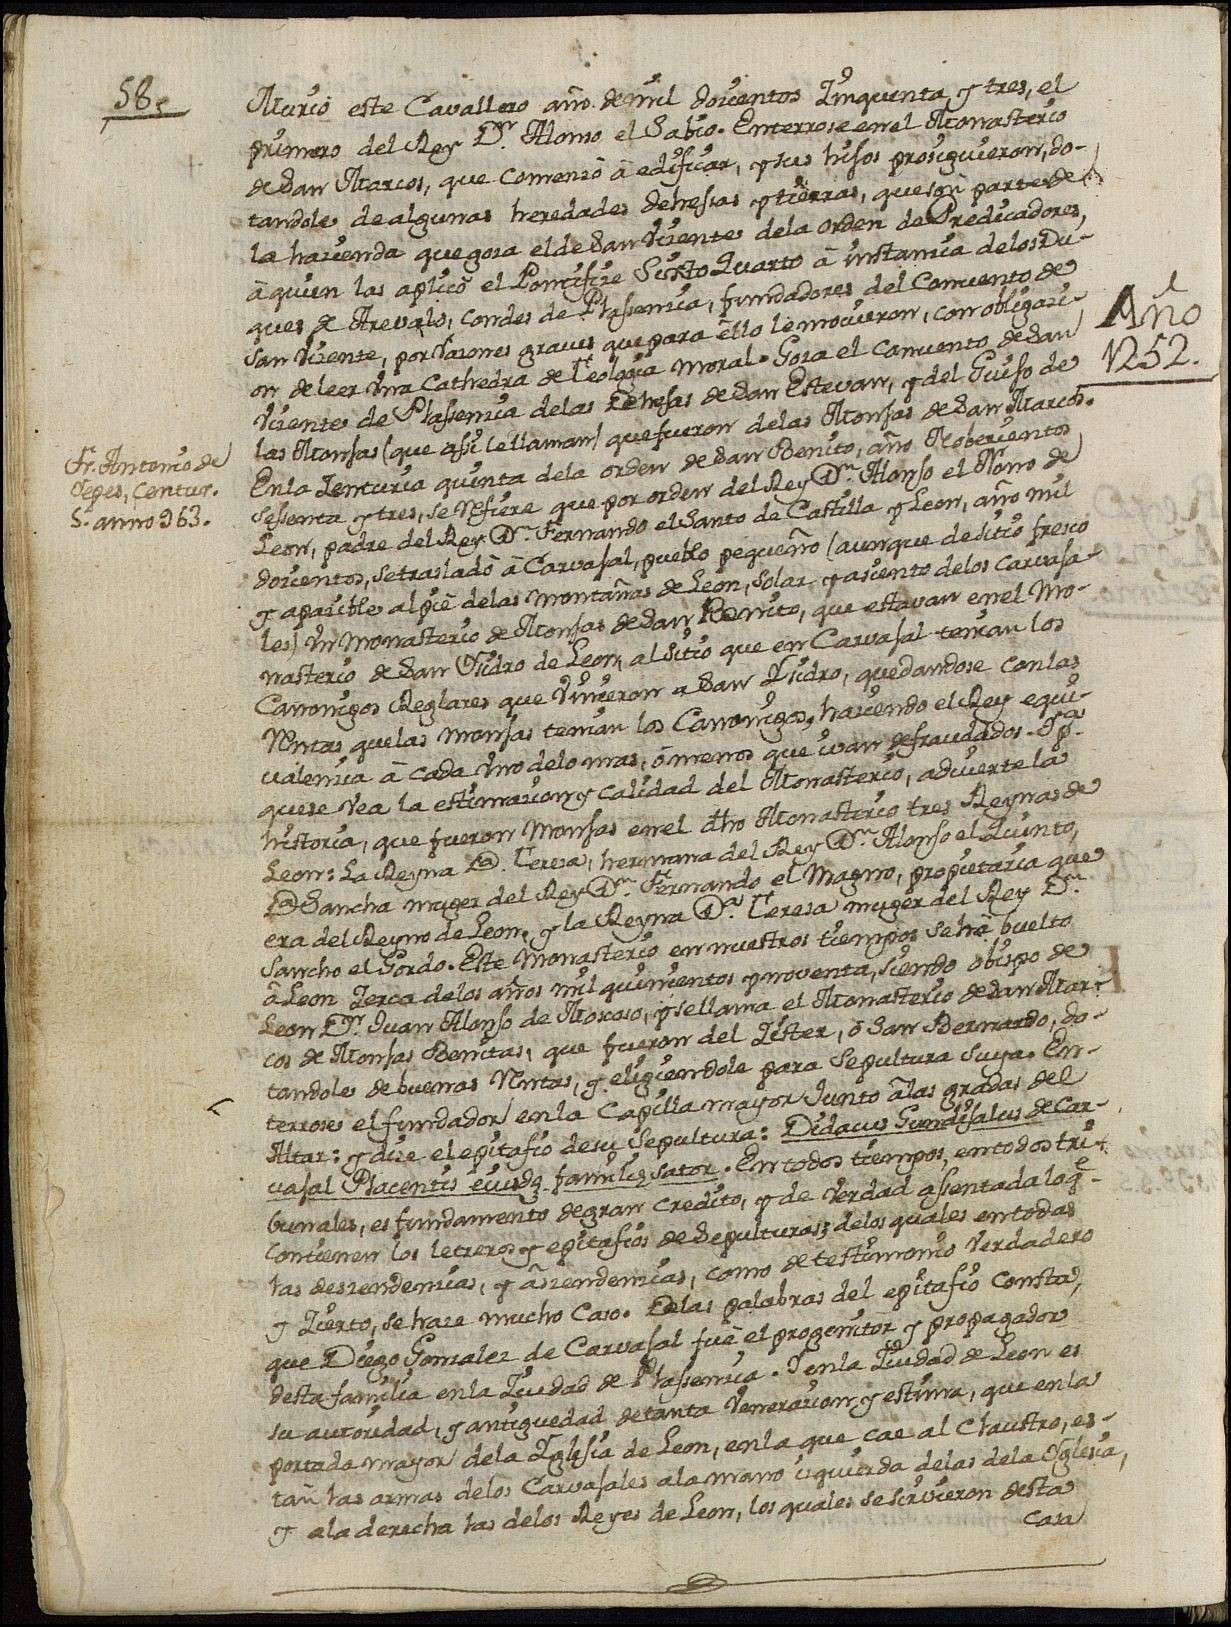 58,
Murio este Cavallero año de mil docientos Zinquenta, y tres, el
primero del Rey D.n Alonso el Sabio. Enterrose en el Monasterio
de San Marcos, que comenzò à edificar, y sus hijos prosiguieron, do-
tandole de algunas heredades dehesas y tierras, que son parte de
la hacienda que goza el de San Vizente de la orden de Predicadores,
à quien las aplicò el Pontifize Sixto Quarto à instancia de los Du-
ques de Arevalo, condes de Plassencia, fundadores del Convento de
San Vizente, por razones graves que para ello le movieron, con obligazi-
on de leer una Cathedra de Teologia moral. Goza el convento de San
Vizente de Plassencia de las Dehesas de San Estevan, y del Guijo de
las Monjas (que assi le llaman) que fueron de las Monjas de San Marcos.
En la Zenturia quinta de la orden de San Benito, año Nobecientos
sessenta y tres, se refiere que por orden del Rey D.n Alonso el Nono de
Leon, padre del Rey D.n Fernando el Santo de Castilla y Leon, año mil
docientos, se trasladò à Carvajal, pueblo pequeño (aunque de sitio fresco
y apacible al piè de las montañas de Leon, Solar y asiento de los Carvaja-
les) un monasterio de Monjas de San Benito, que estavan en el Mo-
nasterio de San Isidro de Leon, al sitio que en Carvajal tenian los
Canonigos Reglares que vinieron a San Isidro, quedandose con las
Rentas que las monjas tenian los Canonigos, haciendo el Rey equi-
valencia à cada uno de lo mas, ò menos que ivan defraudados. P.a
que se vea la estimacion y calidad del Monasterio, advierte la
historia, que fueron Monjas en el dho Monasterio tres Reynas de
Leon: La Reyna D.a Teresa, hermana del Rey D.n Alonso el Quinto,
D.a Sancha muger del Rey D.n Fernando el Magno, propietaria que
era del Reyno de Leon, y la Reyna D.a Teresa muger del Rey D.n
Sancho el Gordo. Este Monasterio en nuestros tiempos se hà buelto
à Leon Zerca de los años mil quinientos y noventa, siendo obispo de
Leon D.n Juan Alonso de Moscoso, y se llama el Monasterio de San Mar-
cos de Monjas Benitas, que fueron del Zister, ò San Bernardo, do-
tandole de buenas Rentas, y eligiendole para sepultura suya. En-
terrose el fundador en la Capilla mayor Junto à las gradas del
Altar: y dize el epitafio de su sepultura: Didacus Gundisalus de Car-
vajal Placentis eiusdq. familiȩ sator. En todos tiempos, en todos tri-
bunales, es fundamento de gran credito, y de verdad assentada lo q.e
contienen los letreros y epitafios de Sepulturas; de los quales en todas
las deszendencias, y aszendencias, como de testimonio verdadero
y Zierto, se haze mucho caso. De las palabras del epitafio consta,
que Diego Gonzalez de Carvajal fuè el progenitor y propagador
desta familia en la Ziudad de Plassencia. Y en la Ziudad de Leon es
su autoridad, y antiguedad de tanta veneracion y estima, que en la
portada mayor de la Yglesia de Leon, en la que cae al Claustro, es-
tan las armas de los Carvajales a la mano izquierda de las de la Yglesia,
y a la derecha las de los Reyes de Leon, los quales se sirvieron desta
casa
Fr. Antonio de
Yepes, Centur.
5. anno 963.
Año
1252.